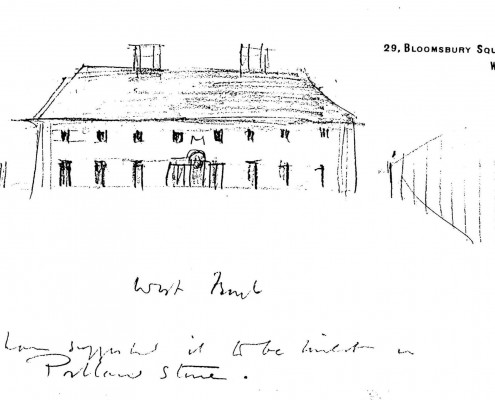 29, BLOOMSBURY SQU
W
West Front
have suggested it to be built in
Portland Stone.